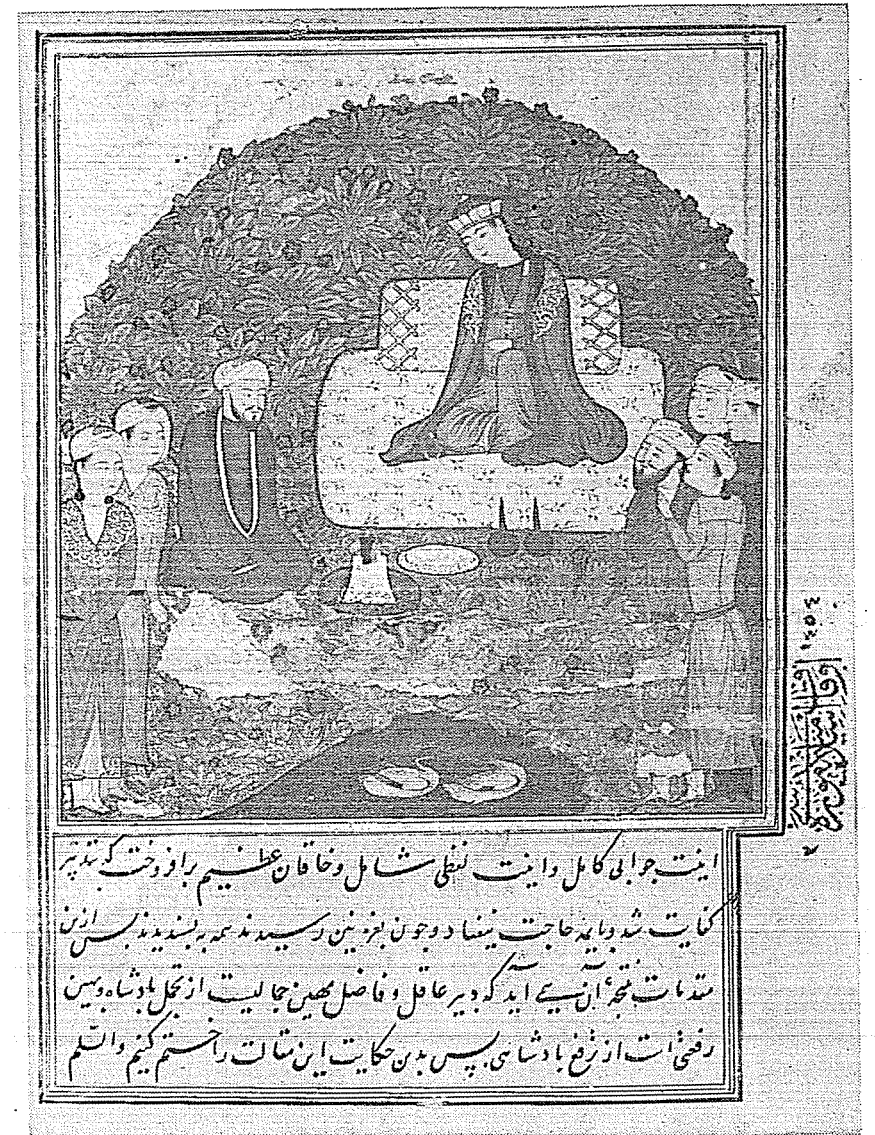 اینت جوابی کامل واینت لفظی شامل وخاقان عظیم برافروخت که بتدبیر
کفایت شد وبایذ حاجت نیفتاد وچون بغزنین رسیدند همه به پسندیدند پس ازین
مقدمات نتیجهٔ آن همی آید که دبیر عاقل وفاضل مهین جمالیست از تجمل بادشاه وبهین
رفعتی است از ترفع بادشاهی پس بدین حکایت این مقالت را ختم کنیم والسلم
اوقاف اسلامیه موزه‌سی
١٩٥٤